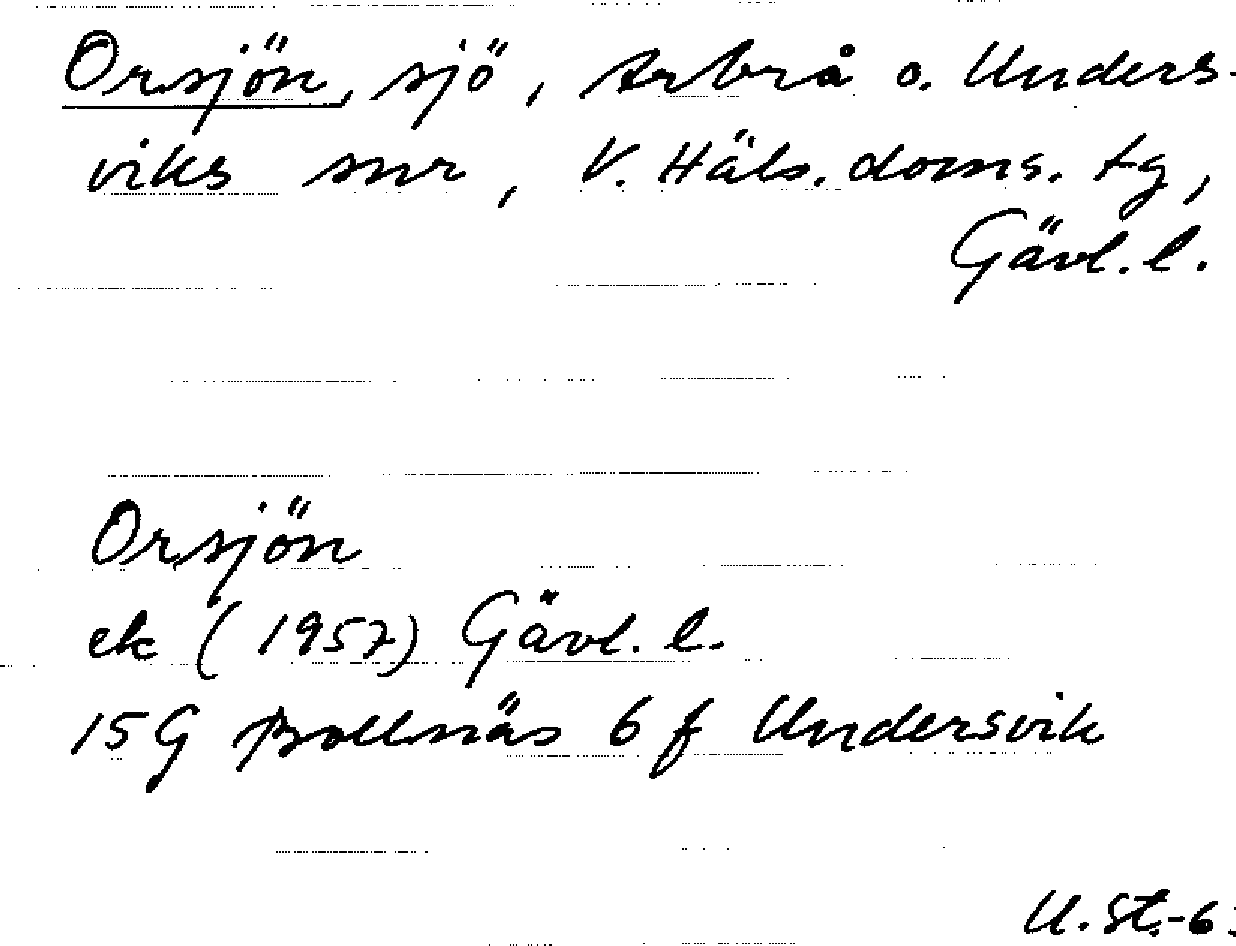 Orsjön, sjö, Arbrå o. Unders-
viks snr, V. Häls. doms. tg,
Gävl. l.
Orsjön
ek (1957) Gävl. l.
15G Bollnäs 6 f Undersvik
U. St.-6